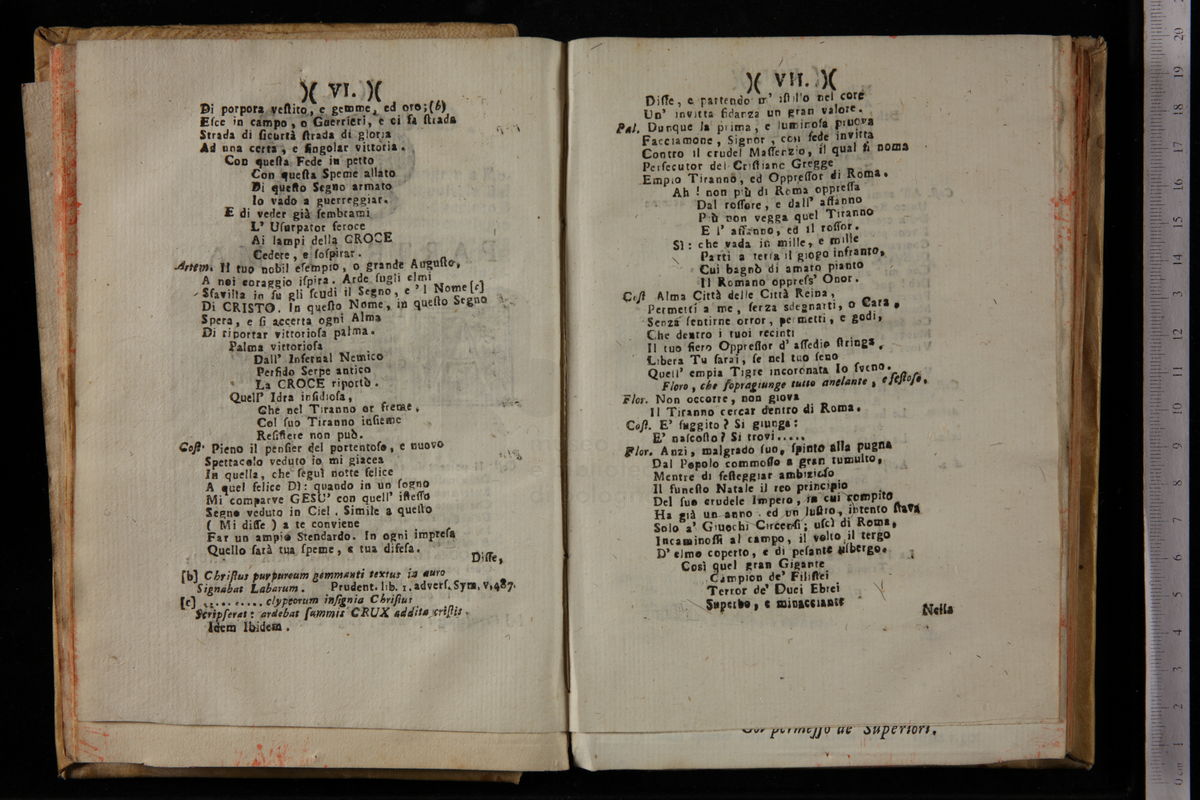 )( VI. )(
Di porpora veſtito, e gemme, ed oro; (b)
Eſce in campo, o Guerrieri, e ci fa ſtrada
Strada di ſicurtà ſtrada di gloria
Ad una certa, e ſingolar vittoria.
Con queſta Fede in petto
Con queſta Speme allato
Di queſto Segno armato
Io vado a guerreggiar.
E di veder già ſembrami
L' Uſurpator feroce
Ai lampi della CROCE
Cedere, e ſoſpirar.
Artem. Il tuo nobil eſempio, o grande Auguſto,
A noi coraggio iſpira. Arde ſugli elmi
Sfavilla in ſu gli ſcudi il Segno, e 'l Nome [c]
Di CRISTO. In queſto Nome, in queſto Segno
Spera, e ſi accerta ogni Alma
Di riportar vittorioſa palma.
Palma vittorioſa
Dall' Infernal Nemico
Perfido Serpe antico
La CROCE riportò.
Quell' Idra inſidioſa,
Che nel Tiranno or freme,
Col ſuo Tiranno inſieme
Reſiſtere non può.
Coſt. Pieno il penſier del portentoſo, e nuovo
Spettacolo veduto io mi giacea
In quella, che ſeguì notte felice
A quel felice Dì: quando in un ſogno
Mi comparve GESU' con quell' iſteſſo
Segno veduto in Ciel. Simile a queſto
( Mi diſſe ) a te conviene
Far un ampio Stendardo. In ogni impreſa
Quello ſarà tua ſpeme, e tua difeſa.
Diſſe,
[b] Chriſtus purpureum gemmanti textus in auro
Signabat Labarum. Prudent. lib. 1. adverſ. Sym. v. 487.
[c] ........ clypeorum inſignia Chriſtus
Scripſerat: ardebat ſummis CRUX addita criſtis.
Idem Ibidem.
)( VII. )(
Diſſe, e partendo m' iſtillò nel core
Un' invitta fidanza un gran valore.
Pal. Dunque la prima, e luminoſa pruova
Facciamone, Signor, con fede invitta
Contro il crudel Maſſenzio, il qual ſi noma
Perſecutor del Criſtiano Gregge
Empio Tiranno, ed Oppreſſor di Roma.
Ah! non più di Roma oppreſſa
Dal roſſore, e dall' affanno
Più non vegga quel Tiranno
E l' affanno, ed il roſſor.
Sì: che vada in mille, e mille
Parti a terra il giogo infranto,
Cui bagnò di amaro pianto
Il Romano oppreſs' Onor.
Coſt Alma Città delle Città Reina,
Permetti a me, ſenza ſdegnarti, o Cara,
Senza ſentirne orror, permetti, e godi,
Che dentro i tuoi recinti
Il tuo fiero Oppreſſor d' aſſedio ſtringa.
Libera Tu ſarai, ſe nel tuo ſeno
Quell' empia Tigre incoronata Io ſveno.
Floro, che ſopragiunge tutto anelante, e feſtoſo.
Flor. Non occorre, non giova
Il Tiranno cercar dentro di Roma.
Coſt. E' fuggito? Si giunga:
E' naſcoſto? Si trovi.....
Flor. Anzi, malgrado ſuo, ſpinto alla pugna
Dal Popolo commoſſo a gran tumulto,
Mentre di feſteggiar ambizioſo
Il funeſto Natale il reo principio
Del ſuo crudele Impero, in cui compito
Ha già un anno, ed un luſtro, intento ſtava
Solo a' Giuochi Circenſi; uſcì di Roma,
Incaminoſſi al campo, il volto il tergo
D' elmo coperto, e di peſante usbergo.
Così quel gran Gigante
Campion de' Filiſtei
Terror de' Duci Ebrei
Superbo, e minacciante
Nella
Con permeſſo de' Superiori.